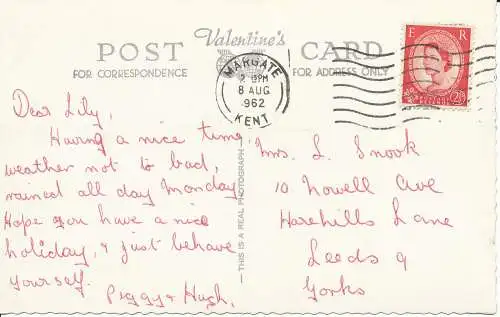 Valentine's
POST CARD
FOR CORRESPONDENCE
FOR ADDRESS ONLY
MARGATE
2 15PM
8 AUG
1962
KENT
E R
2½D
THIS IS A REAL PHOTOGRAPH
Dear Lily,
Having a nice time,
weather not to bad,
rained all day Monday
Hope you have a nice
holiday, & just behave
yourself.
Peggy & Hugh,
Mrs. L. Snook
10 Nowell Ave
Harehills Lane
Leeds 9
Yorks